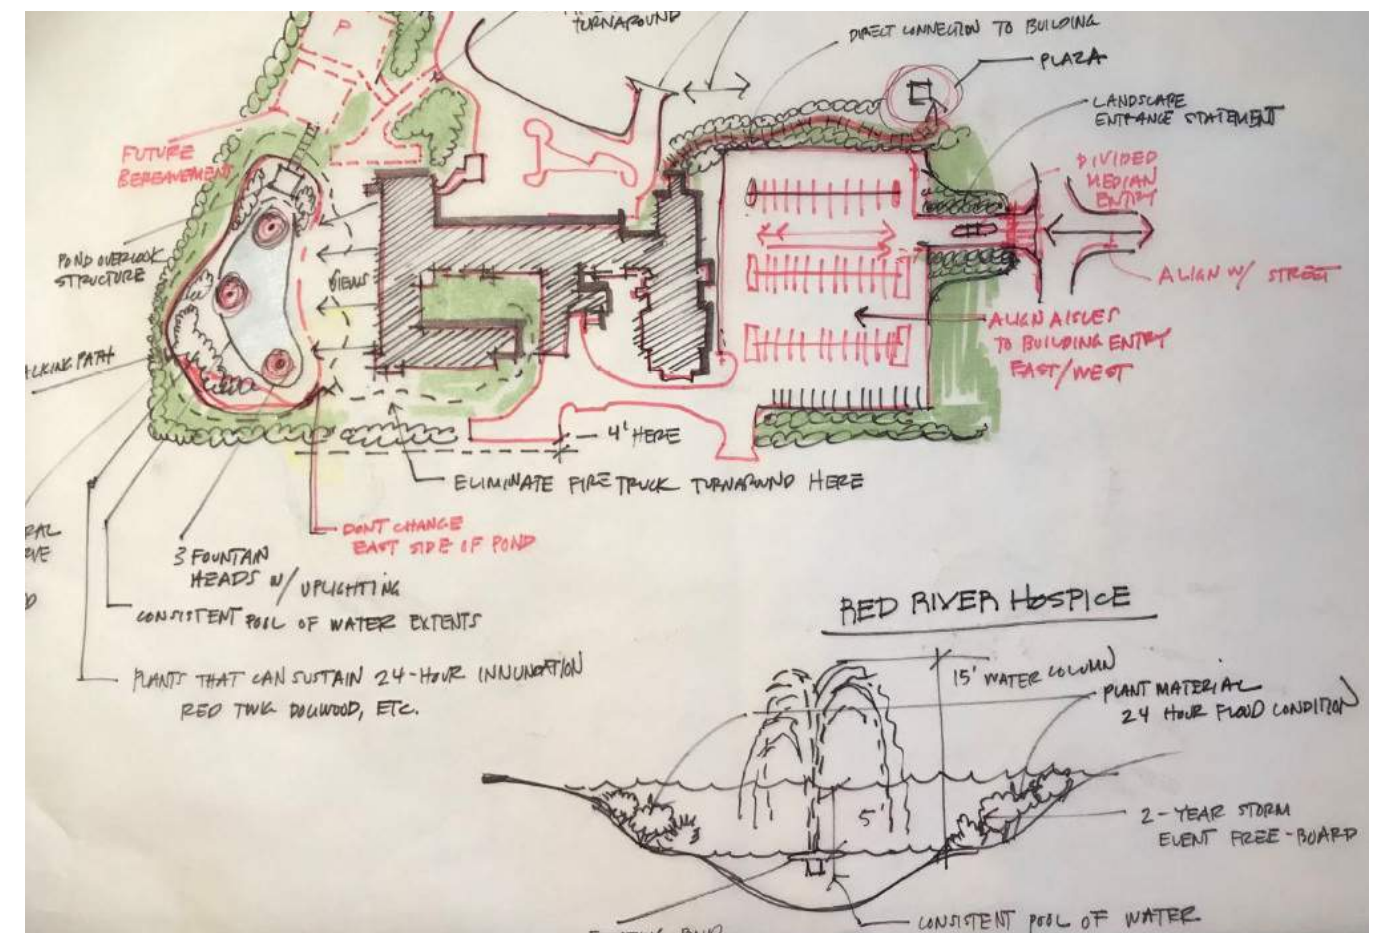 TURNAROUND
DIRECT CONNECTION TO BUILDING
PLAZA
LANDSCAPE
ENTRANCE STATEMENT
P
DIVIDED
MEDIAN
ENTRY
FUTURE
BEREAVEMENT
POND OVERLOOK
STRUCTURE
VIEWS
ALIGN W/ STREET
ALIGN AISLES
TO BUILDING ENTRY
EAST/WEST
ALKING PATH
4' HERE
ELIMINATE FIRE TRUCK TURNAROUND HERE
DONT CHANGE
EAST SIDE OF POND
3 FOUNTAIN
HEADS W/ UPLIGHTING
CONSISTENT POOL OF WATER EXTENTS
PLANTS THAT CAN SUSTAIN 24-HOUR INNUNDATION
RED TWIG DOGWOOD, ETC.
RED RIVER HOSPICE
15' WATER COLUMN
PLANT MATERIAL
24 HOUR FLOOD CONDITION
5'
2-YEAR STORM
EVENT FREE-BOARD
CONSISTENT POOL OF WATER